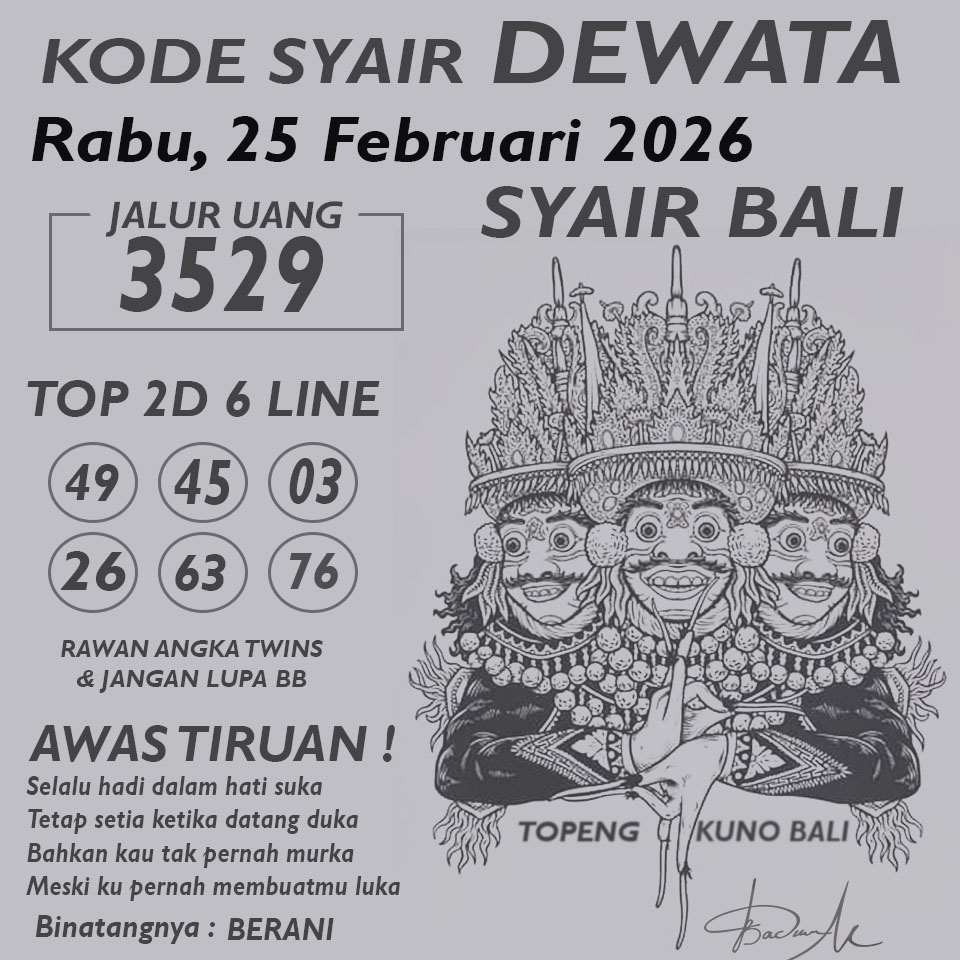 KODE SYAIR DEWATA
Rabu, 25 Februari 2026
SYAIR BALI
JALUR UANG
3529
TOP 2D 6 LINE
49 45 03
26 63 76
RAWAN ANGKA TWINS
& JANGAN LUPA BB
AWAS TIRUAN !
Selalu hadi dalam hati suka
Tetap setia ketika datang duka
Bahkan kau tak pernah murka
Meski ku pernah membuatmu luka
Binatangnya : BERANI
TOPENG KUNO BALI